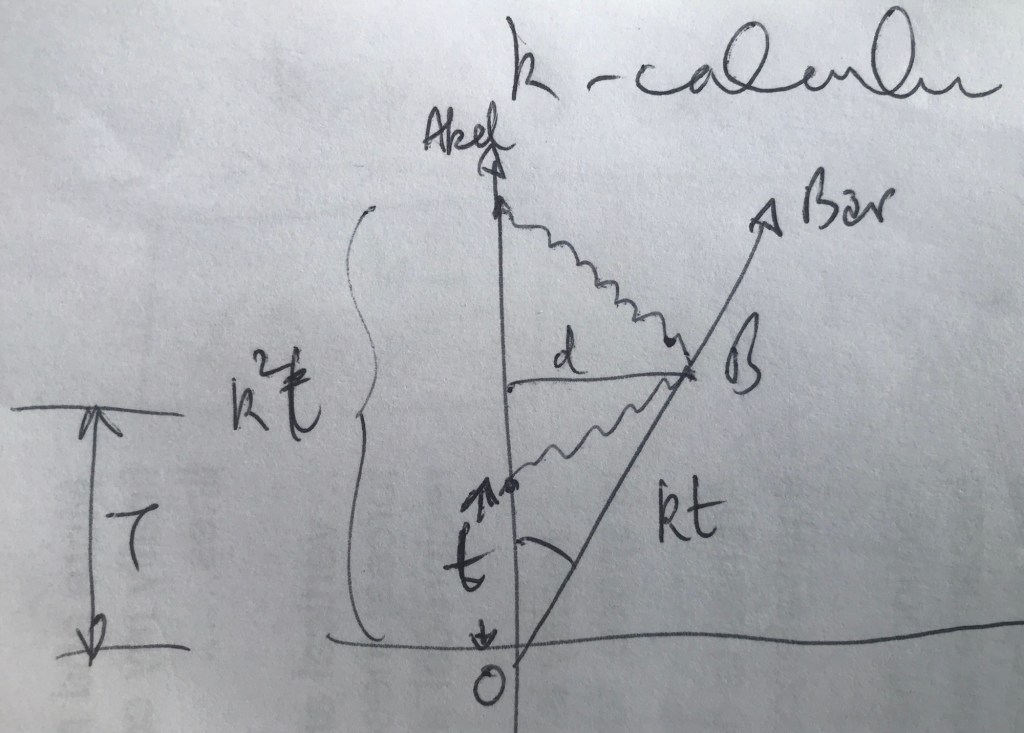 k-calculu
Akef
Bar
d
B
k²t
T
t
kt
O